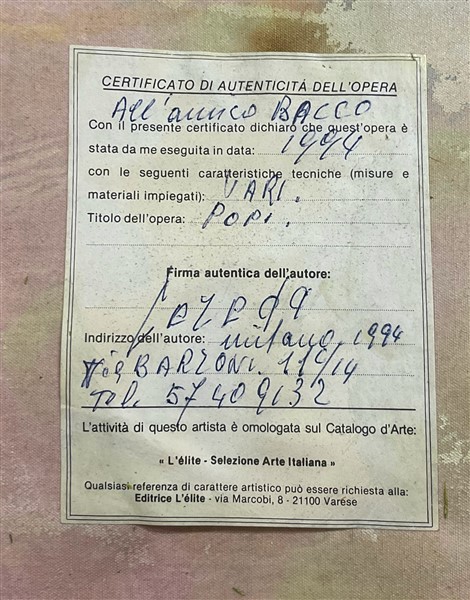 CERTIFICATO DI AUTENTICITÁ DELL'OPERA
All'amico BACCO
Con il presente certificato dichiaro che quest'opera è
stata da me eseguita in data: 1994
con le seguenti caratteristiche tecniche (misure e
materiali impiegati): VARI.
Titolo dell'opera: POPI.
Firma autentica dell'autore:
Indirizzo dell'autore: milano, 1994
Via BARZONI. 11
Tel. 57409132
L'attività di questo artista è omologata sul Catalogo d'Arte:
« L'élite - Selezione Arte Italiana »
Qualsiasi referenza di carattere artistico può essere richiesta alla:
Editrice L'élite - via Marcobi, 8 - 21100 Varese